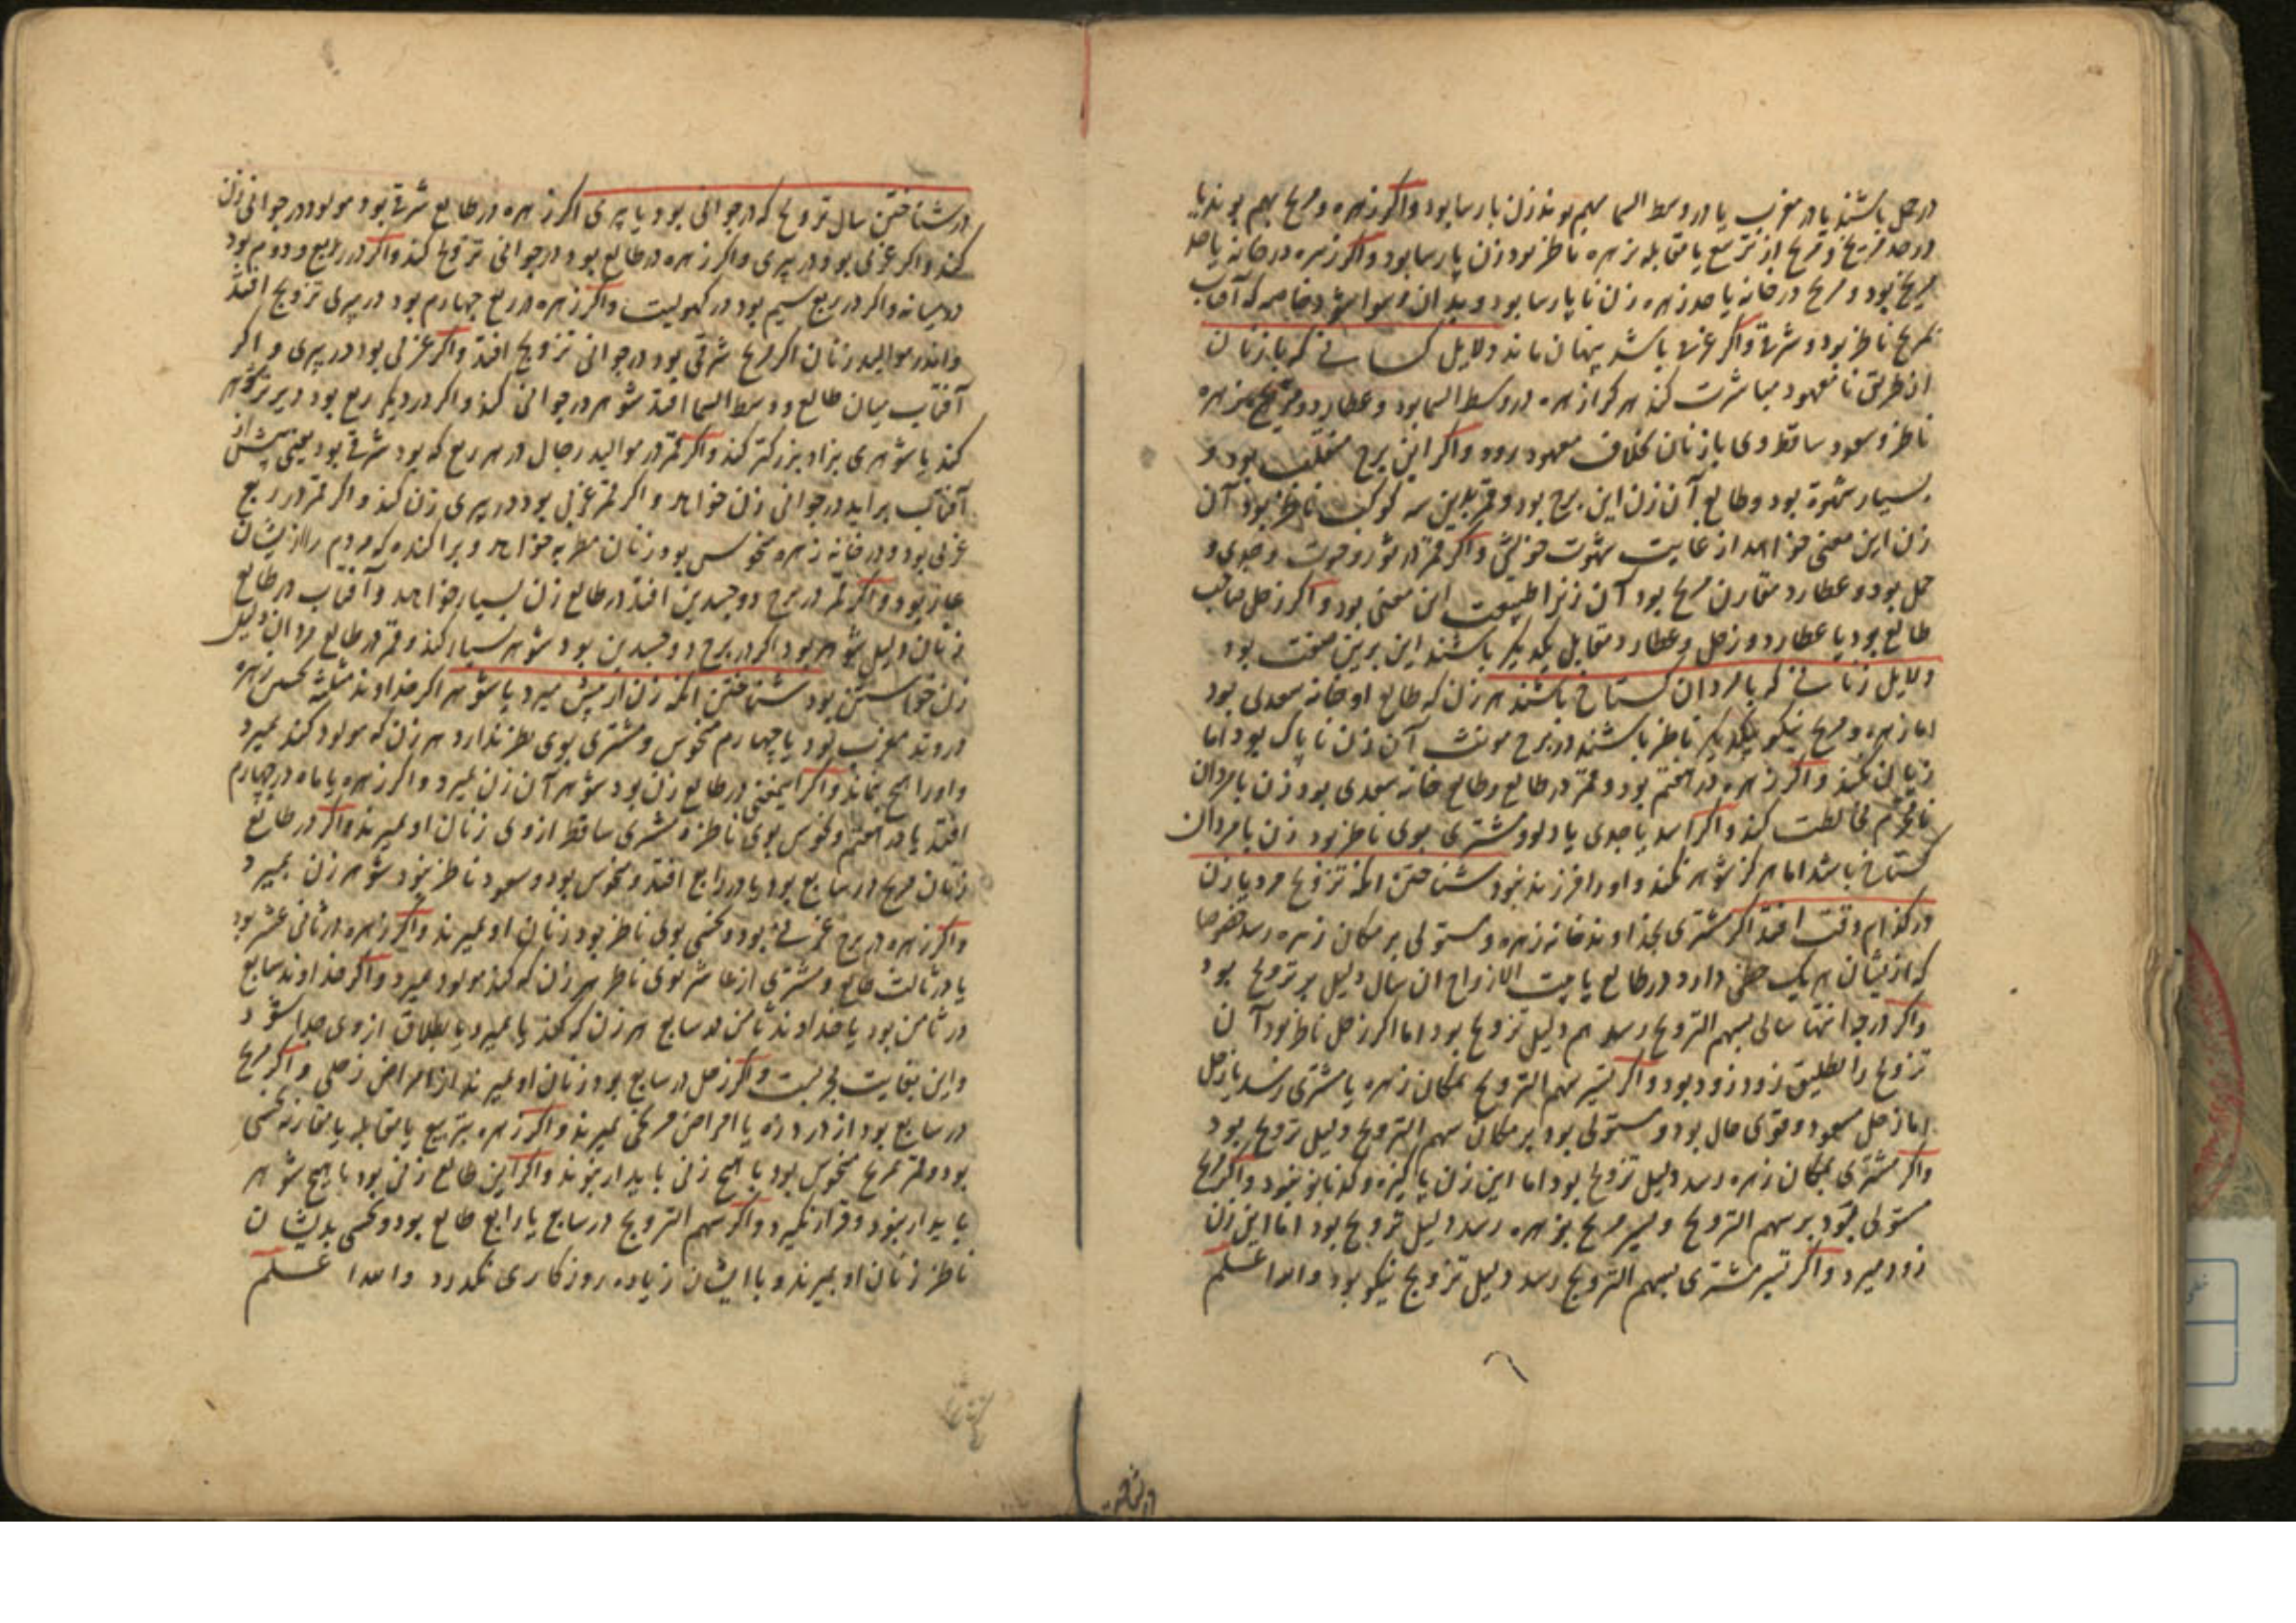 در حمل باشند یا در مغرب یا در وسط السما بهم بوند زن پارسا بود و اگر زهره و مریخ بهم بوند یا
در حد مریخ و مریخ از تربیع یا مقابله بزهره ناظر بود زن پارسا بود و اگر زهره در خانه یا حد
مریخ بود و مریخ در خانه یا حد زهره زن ناپارسا بود و بدان رسوا شود خاصه که آفتاب
بمریخ ناظر بود و شرقی و اگر غربی باشد پنهان ماند دلایل کسانی که با زنان
از طریق نا معهود مباشرت کند هر کرا زهره در وسط السما بود و عطارد و مریخ بزهره
ناظر و سعود ساقط وی با زنان بخلاف معهود رود و اگر این برج منقلب بود و
بسیار شهوة بود و طالع آن زن این برج بود و قمر بدین سه کوکب ناظر بود آن
زن این معنی خواهد از غایت شهوت خویش و اگر قمر در ثور و حوت و جدی و
حمل بود و عطارد مقارن مریخ بود آن زنرا طبیعت این معنی بود و اگر زحل صاحب
طالع بود یا عطارد و زحل و عطارد مقابل یکدیگر باشند این برین صفت بود
دلایل زنانی که با مردان گستاخ باشند هر زن که طالع او خانه سعدی بود
اما زهره و مریخ نیکو بیکدیگر ناظر باشند در برج مونث آن زن ناپاک بود اما
زیان نکند و اگر زهره در هفتم بود و قمر در طالع و طالع خانه سعدی بود زن با مردان
نامحرم مخالطت کند و اگر اسد یا جدی یا دلو و مشتری بوی ناظر بود زن با مردان
گستاخ باشد اما هرگز شوهر نکند و اورا فرزند نبود شناختن انکه تزویج مرد یا زن
در کدام وقت افتد اگر مشتری بخداوند خانه زهره و مستولی بر مکان زهره رسد خصوصا
که ازیشان هر یک حظی دارد در طالع یا بیت الازواج ان سال دلیل بر تزویج بود
و اگر درجه انتها سالی بسهم التزویج رسد هم دلیل تزویج بود اما اگر زحل ناظر بود آن
تزویج را تطلیق زود زود بود و اگر تسیر سهم التزویج بمکان زهره یا مشتری رسد یا زحل
اما زحل مسعود و قوی حال بود و مستولی بود بر مکان سهم التزویج دلیل تزویج بود
و اگر مشتری بمکان زهره رسد دلیل تزویج بود اما این زن پاکیزه و کدبانو بنود و اگر مریخ
مستولی بود بر سهم التزویج و تسیر مریخ بزهره رسد دلیل تزویج بود اما این زن
زود میرد و اگر تسیر مشتری بسهم التزویج رسد دلیل تزویج نیکو بود والله اعلم
در شناختن
در شناختن سال تزویج که در جوانی بود یا پیری اگر زهره در طالع شرقی بود مولود در جوانی زن
کند و اگر غربی بود در پیری و اگر زهره در طالع بود در جوانی تزویج کند و اگر در ربع دوم بود
در میانه و اگر در ربع سیم بود در کهولیت و اگر زهره در ربع چهارم بود در پیری تزویج افتد
و اندر موالید زنان اگر مریخ شرقی بود در جوانی تزویج افتد و اگر غربی بود در پیری و اگر
آفتاب میان طالع و وسط السما افتد شوهر در جوانی کند و اگر در دیگر ربع بود دیرتر شوهر
کند یا شوهری بزاد بزرگتر کند و اگر قمر در موالید رجال در هر ربع که بود شرقی بود یعنی پیش از
آفتاب براید در جوانی زن خواهد و اگر قمر غربی بود در پیری زن کند و اگر قمر در ربع
غربی بود و در خانه زهره منحوس بود زنان مطربه خواهد و پراکنده که مردم را ازیشان
عار بود و اگر قمر در برج دو جسدین افتد در طالع زن بسیار خواهد و آفتاب در طالع
زنان دلیل شوهر بود اگر در برج دو جسدین بود شوهر بسیار کند و قمر در طالع مردان دلیل
زن خواستن بود شناختن انکه زن از پیش میرد یا شوهر اگر خداوند مثلثه زهره
در وتد مغرب بود یا چهارم منحوس و مشتری بوی نظر ندارد هر زن که مولود کند بمیرد
و اورا هیچ نماند و اگر اینمعنی در طالع زن بود شوهر آن زن بمیرد و اگر زهره یا ماه در چهارم
افتد یا در هفتم و نحوس بوی ناظر و مشتری ساقط از وی زنان او بمیرند و اگر در طالع
زنان مریخ در سابع بود یا در رابع افتد و منحوس بود و سعود ناظر نبود شوهر زن بمیرد
و اگر زهره در برج غربی بود و نحسی بوی ناظر بود زنان او بمیرند و اگر زهره در ثانی عشر بود
یا در ثالث طالع و مشتری از عاشر بوی ناظر هر زن که کند مولود میرد و اگر خداوند سابع
در ثامن بود یا خداوند ثامن در سابع هر زن که کند یا بمیرد یا بطلاق از وی جدا شود
و این بغایت مجربست و اگر زحل در سابع بود زنان او بمیرند از امراض زحلی و اگر مریخ
در سابع بود از درد زه یا امراض مریخی بمیرند و اگر زهره بتربیع یا مقابله یا مقارنه نحسی
بود و قمر بمریخ منحوس بود با هیچ زنی پایدار نبوند و اگر این طالع زنی بود با هیچ شوهر
پایدار نبود و قرار نگیرد و اگر سهم التزویج در سابع یا رابع طالع بود و نحسی بدیشان
ناظر زنان او بمیرند و با ایشان زیاده روزگاری نگذرد والله اعلم